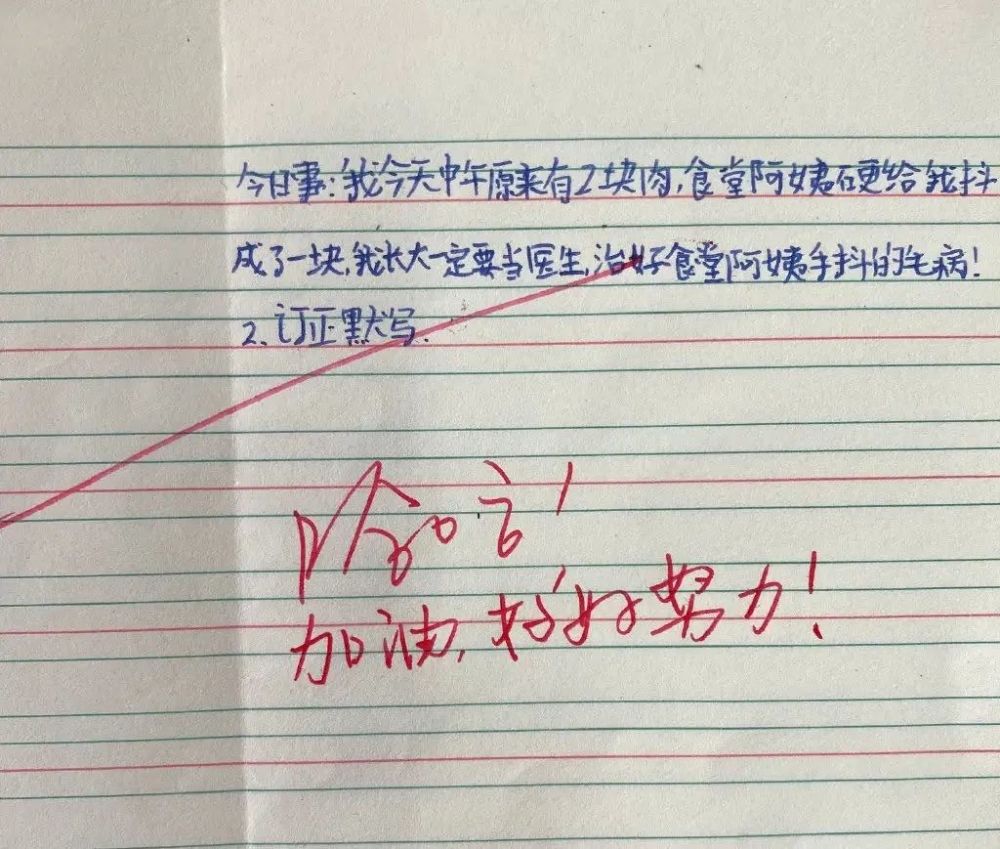 今日事:我今天中午原来有2块肉,食堂阿姨硬给我抖
成了一块,我长大一定要当医生,治好食堂阿姨手抖的毛病!
2、订正默写.
哈哈!
加油,好好努力!